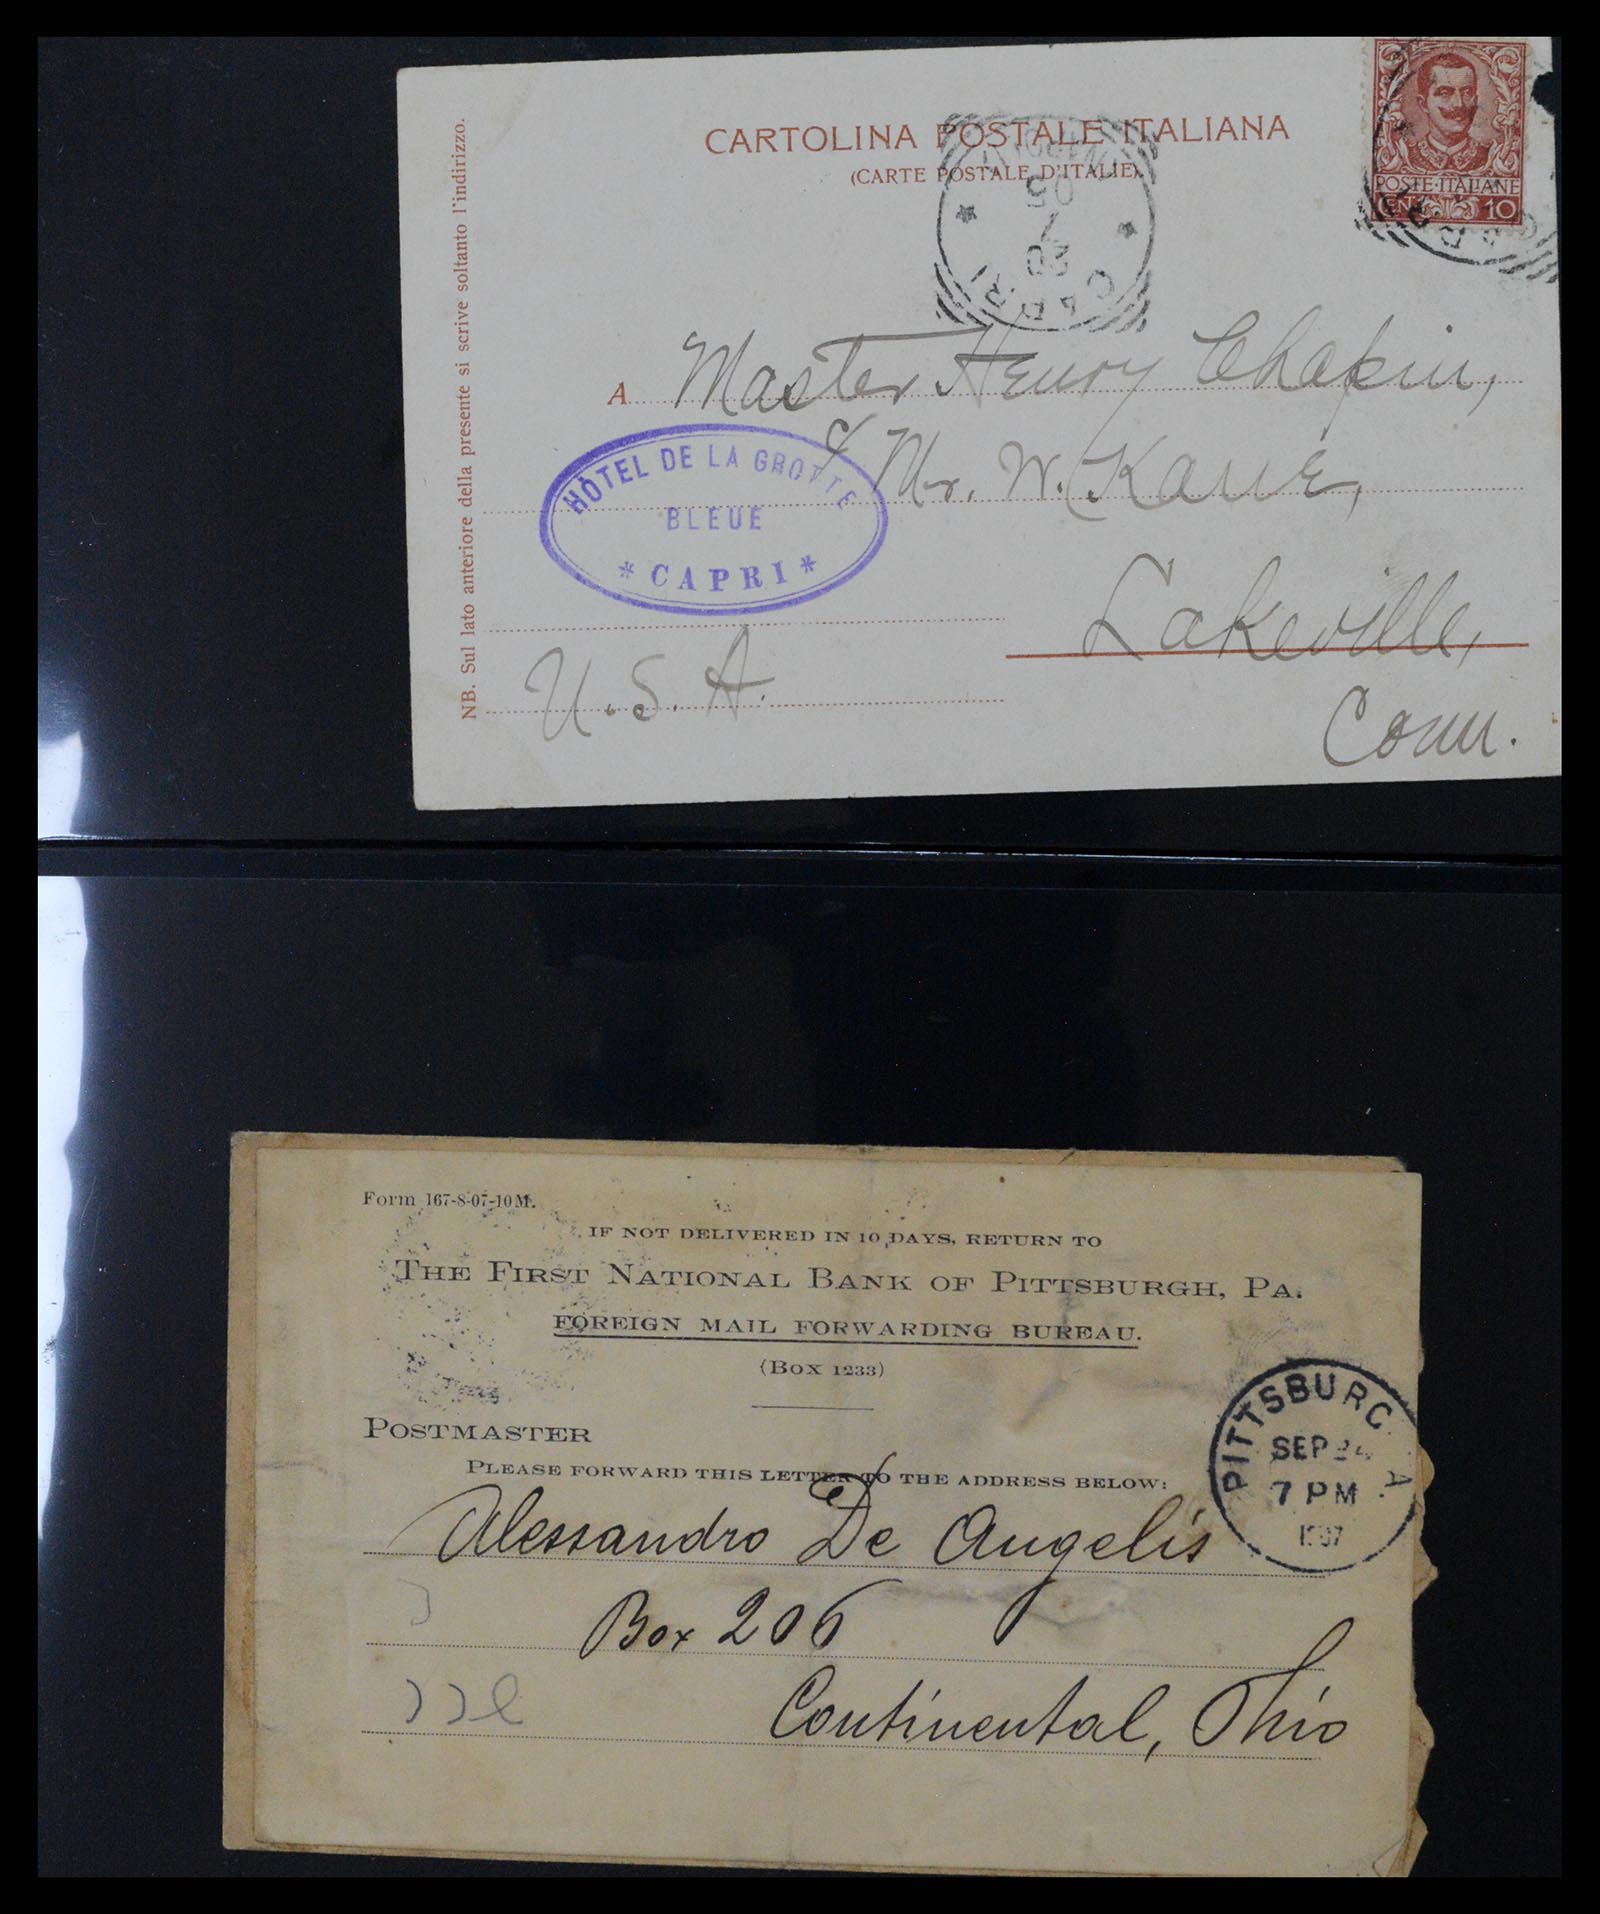 CARTOLINA POSTALE ITALIANA
(CARTE POSTALE D'ITALIE)
POSTE·ITALIANE
CENT. 10
NB. Sul lato anteriore della presente si scrive soltanto l'indirizzo.
CAPRI
05
7
20
A Master Henry Chapin,
c/ Mr. W. Kane,
HÔTEL DE LA GROTTE
BLEUE
* CAPRI *
Lakeville,
U.S.A.
Conn.
Form 167-8-07-10M.
IF NOT DELIVERED IN 10 DAYS, RETURN TO
THE FIRST NATIONAL BANK OF PITTSBURGH, PA.
FOREIGN MAIL FORWARDING BUREAU.
(BOX 1233)
PITTSBURG
SEP 24
7 PM
1907
POSTMASTER
PLEASE FORWARD THIS LETTER TO THE ADDRESS BELOW:
Alessandro De Angelis
Box 206
Continental, Ohio